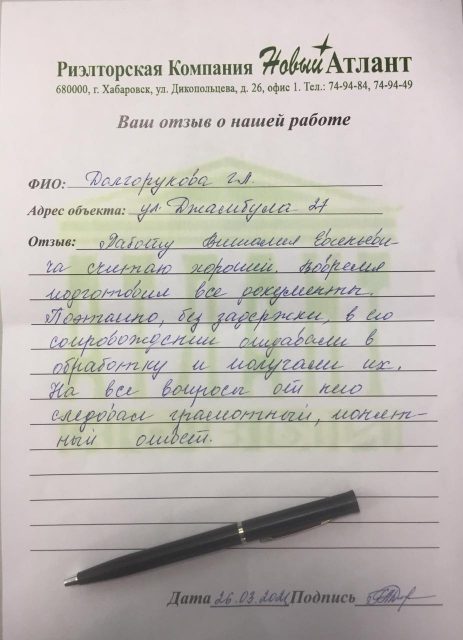 Риэлторская Компания Новый Атлант
680000, г. Хабаровск, ул. Дикопольцева, д. 26, офис 1. Тел.: 74-94-84, 74-94-49
Ваш отзыв о нашей работе
ФИО: Долгорукова Г.Л.
Адрес объекта: ул Джамбула 27
Отзыв: Работу Виталия Евгеньеви-
ча считаю хорошей. Вовремя
подготовил все документы.
Поэтапно, без задержки, в его
сопровождении отдавали в
обработку и получали их.
На все вопросы от него
следовал грамотный, понят-
ный ответ.
Дата 26.03.2021 Подпись